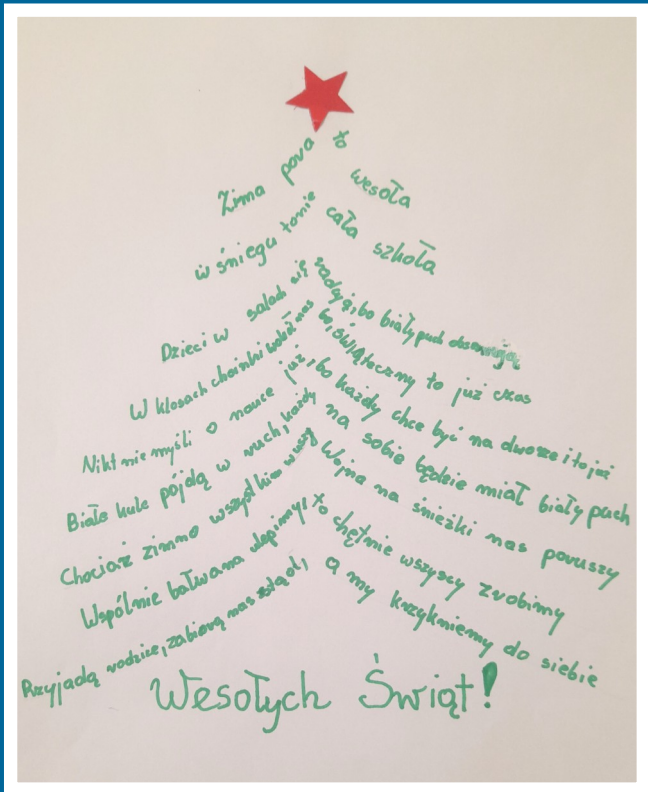 Zima pora to wesoła
w śniegu tonie cała szkoła
Dzieci w salach się radują, bo biały puch obserwują
W klasach choinki wokół nas bo, świąteczny to już czas
Nikt nie myśli o nauce już, bo każdy chce być na dworze i to już
Białe kule pójdą w ruch, każdy na sobie będzie miał biały puch
Chociaż zimno wszystkim w uszy Wojna na śnieżki nas poruszy
Wspólnie bałwana ulepimy, to chętnie wszyscy zrobimy
Przyjadą rodzice, zabiorą nas stąd, a my krzykniemy do siebie
Wesołych Świąt!